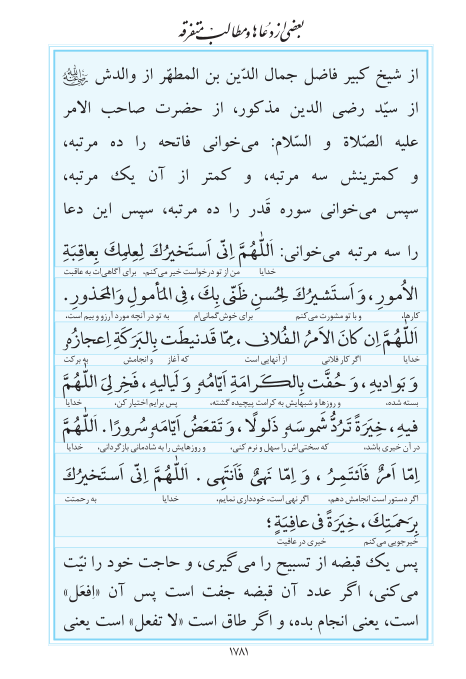 بعضی از دعاها و مطالب متفرقه
از شیخ کبیر فاضل جمال الدّین بن المطهّر از والدش
از سیّد رضی الدین مذکور، از حضرت صاحب الامر
علیه الصّلاة و السّلام: می‌خوانی فاتحه را ده مرتبه،
و کمترینش سه مرتبه، و کمتر از آن یک مرتبه،
سپس می‌خوانی سوره قَدر را ده مرتبه، سپس این دعا
را سه مرتبه می‌خوانی: اَللّٰهُمَّ اِنّی اَستَخیرُكَ لِعِلمِكَ بِعاقِبَةِ
خدایا من از تو درخواست خیر می‌کنم، برای آگاهی‌ات به عاقبت
الاُمورِ، وَ اَستَشیرُكَ لِحُسنِ ظَنّی بِكَ، فِی المَأمولِ وَالمَحذورِ.
کارها، و با تو مشورت می‌کنم برای خوش‌گمانی‌ام به تو در آنچه مورد آرزو و بیم است.
اَللّٰهُمَّ اِن کانَ الاَمرُ الفُلانی، مِمّا قَد نیطَت بِالبَرَکَةِ اِعجازُهُ
خدایا اگر کار فلانی از آنهایی است که آغاز و انجامش به برکت
وَ بَوادیهِ، وَ حُفَّت بِالکَرامَةِ اَیّامُهُ وَ لَیالیهِ، فَخِر لِیَ اللّٰهُمَّ
بسته شده، و روزها و شبهایش به کرامت پیچیده گشته، پس برایم اختیار کن، خدایا
فیهِ، خِیَرَةً تَرُدُّ شَموسَهُ ذَلولًا، وَ تَقعَضُ اَیّامَهُ سُرورًا. اَللّٰهُمَّ
در آن خیری باشد، که سختی‌اش را سهل و نرم کنی، و روزهایش را به شادمانی بازگردانی، خدایا
اِمّا اَمرٌ فَاَئتَمِرُ، وَ اِمّا نَهیٌ فَاَنتَهی. اَللّٰهُمَّ اِنّی اَستَخیرُكَ
اگر دستور است انجامش دهم، اگر نهی است، خودداری نمایم. خدایا به رحمتت
بِرَحمَتِكَ، خِیَرَةً فی عافِیَةٍ؛
خیرجویی می‌کنم خیری در عافیت
پس یک قبضه از تسبیح را می‌گیری، و حاجت خود را نیّت
می‌کنی، اگر عدد آن قبضه جفت است پس آن «اِفعَل»
است، یعنی انجام بده، و اگر طاق است «لا تفعل» است یعنی
۱۷۸۱